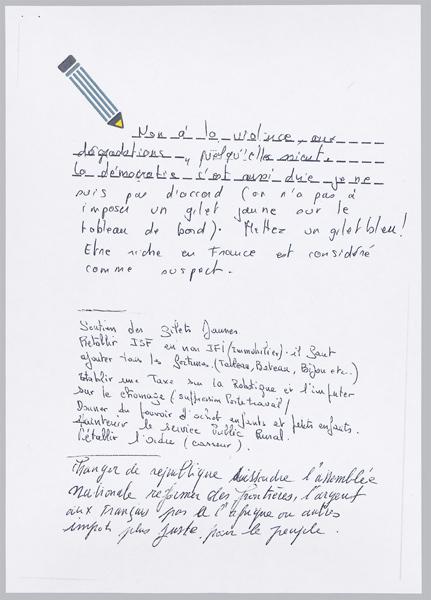 Non à la violence, aux
dégradations, quelqu'elles soient,
la démocratie c'est aussi dire je ne
suis pas d'accord (on n'a pas à
imposer un gilet jaune sur le
tableau de bord). Mettez un gilet bleu!
Etre riche en France est considéré
comme suspect.
Soutien des Gilets Jaunes
Rétablir ISF et non IFI (Immobilier). il faut
ajouter tous les fortunes. (Tableau, Bateau, Bijou etc..)
Etablir une Taxe sur la Robotique et l'imputer
sur le chomage (suppression Poste travail)
Donner du pouvoir d'achat enfants et petits enfants.
Maintenir le service Public Rural.
Rétablir l'ordre (casseur).
Changer de republique dissoudre l'assemblée
nationale refermer des frontières, l'argent
aux Français pas à l'Afrique ou autres
impots plus juste pour le peuple.